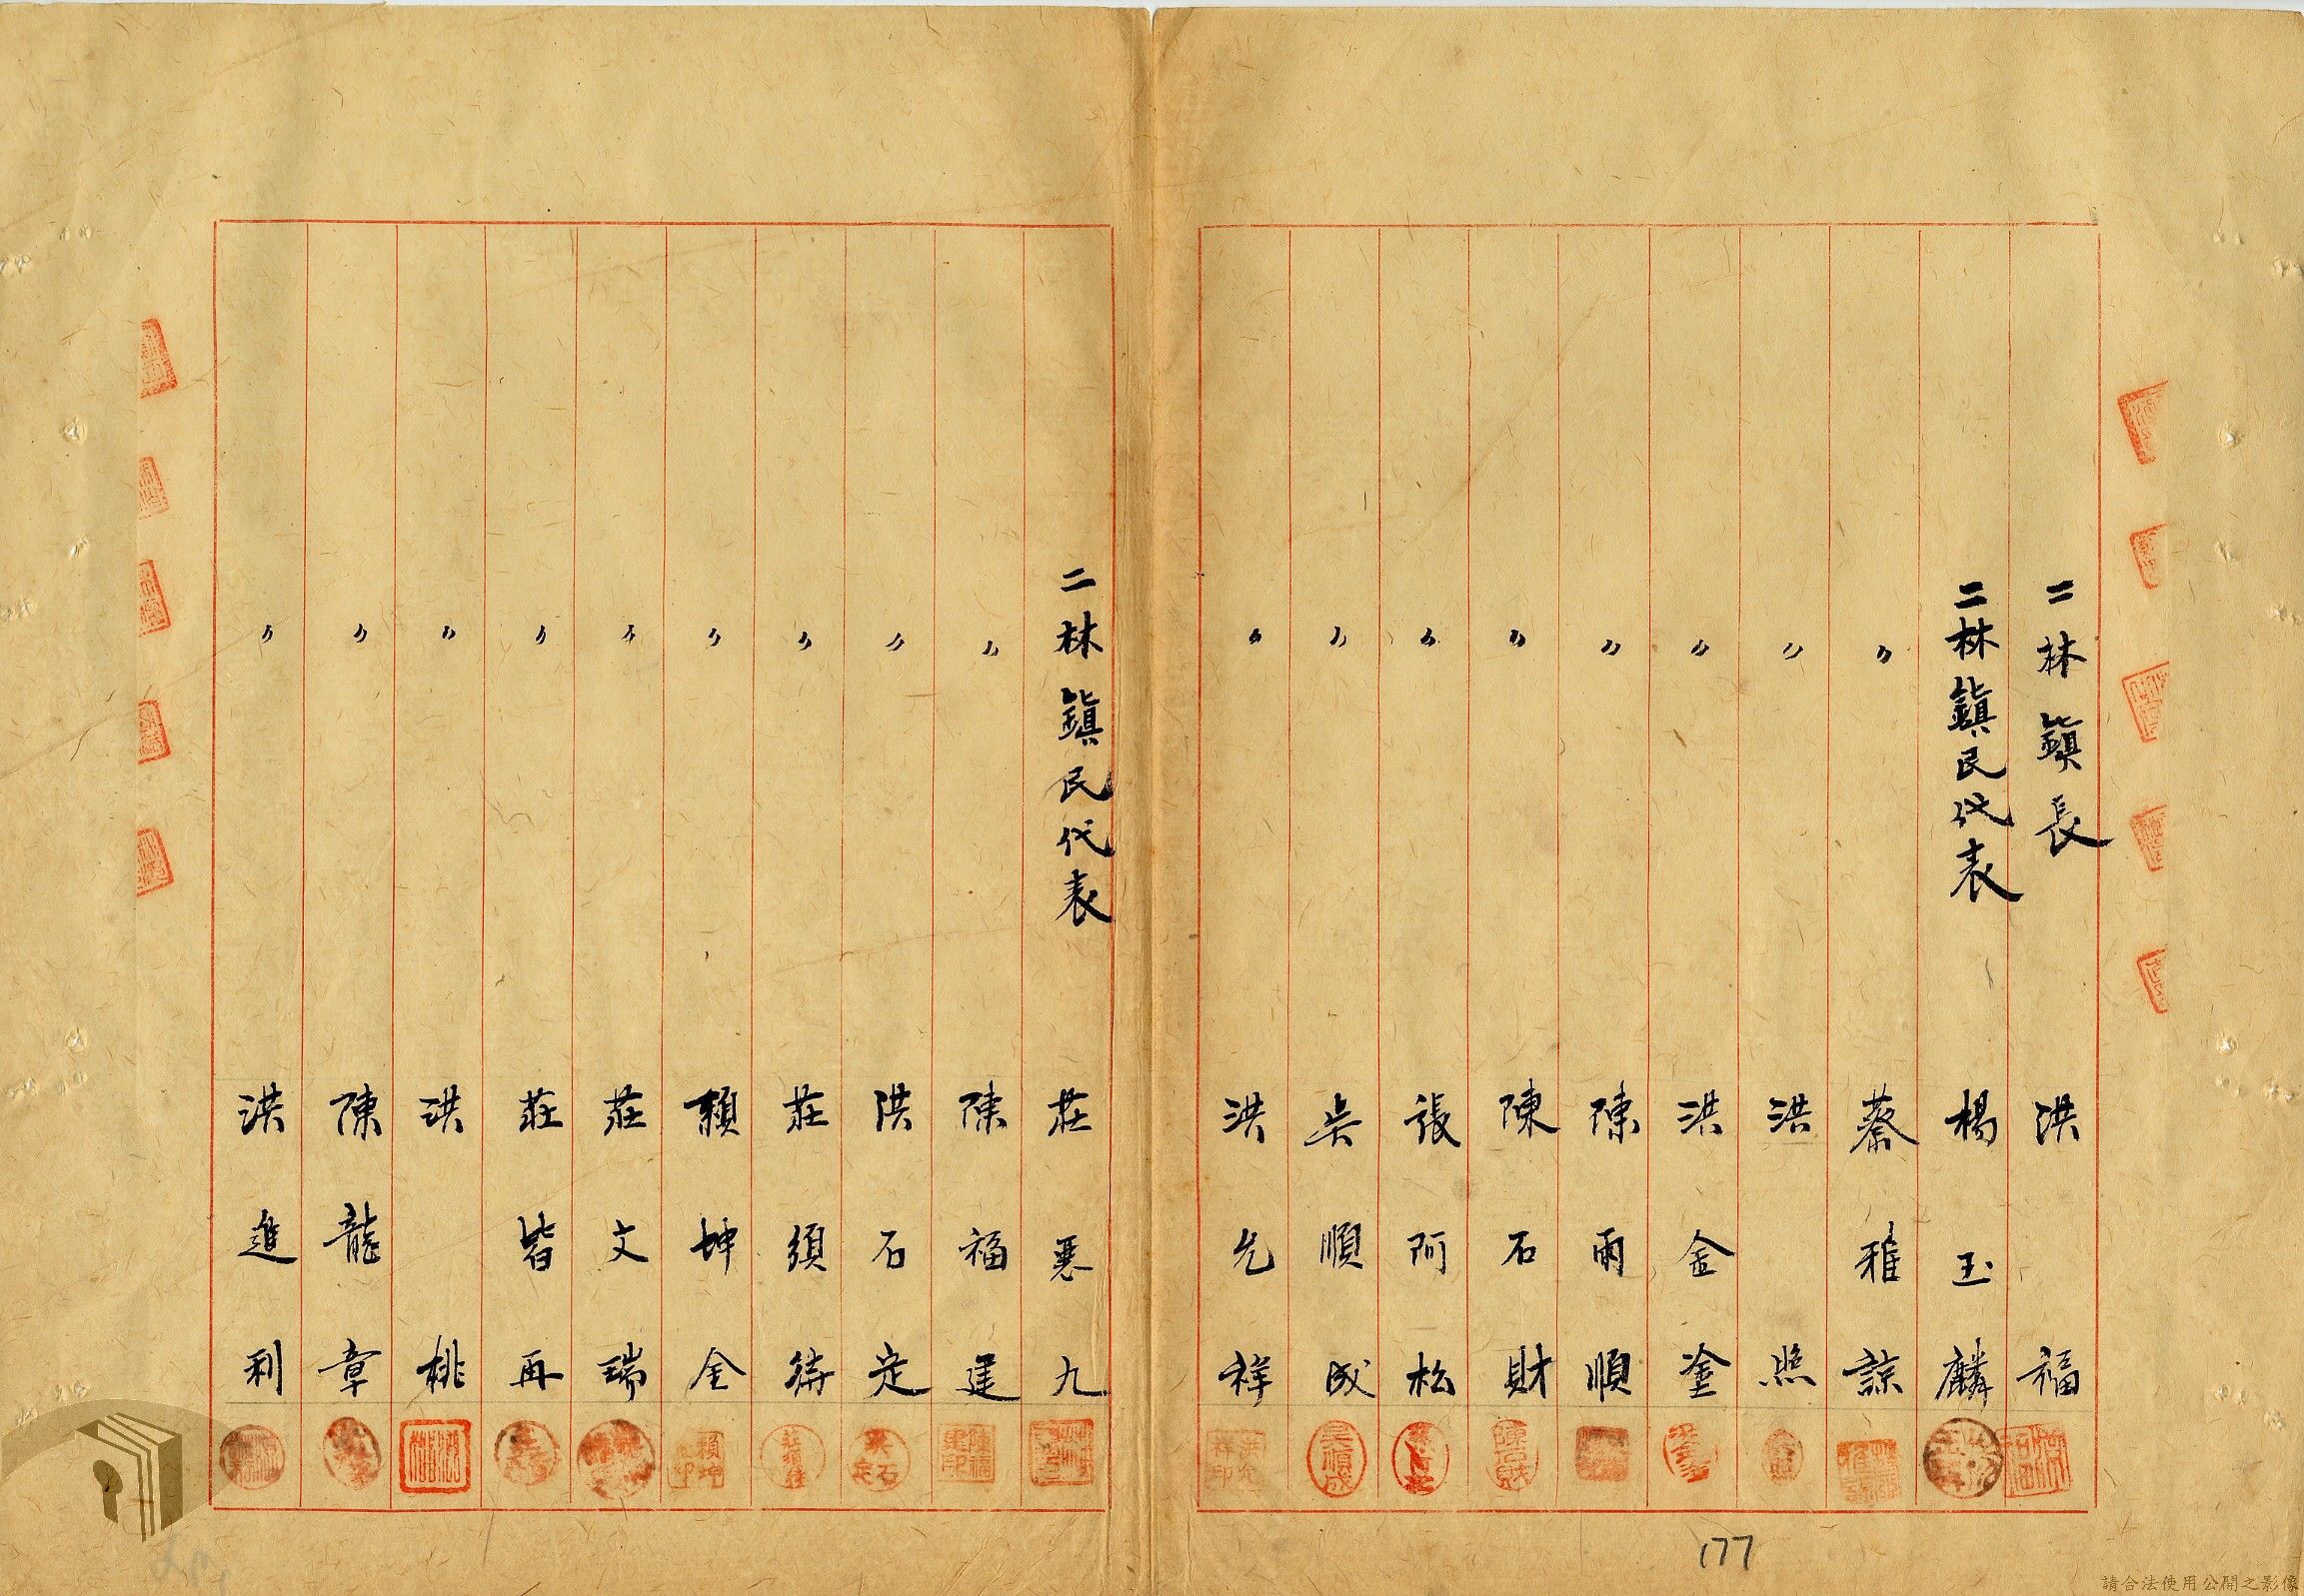 二林鎮長 洪福
二林鎮民代表 楊玉麟
〃 蔡雅諒
〃 洪照
〃 洪金塗
〃 陳雨順
〃 陳石財
〃 張阿松
〃 吳順成
〃 洪允祥
二林鎮民代表 莊惡九
〃 陳福建
〃 洪石定
〃 莊須待
〃 賴坤全
〃 莊文瑞
〃 莊皆再
〃 洪桃
〃 陳龍章
〃 洪進利
177
請合法使用公開之影像